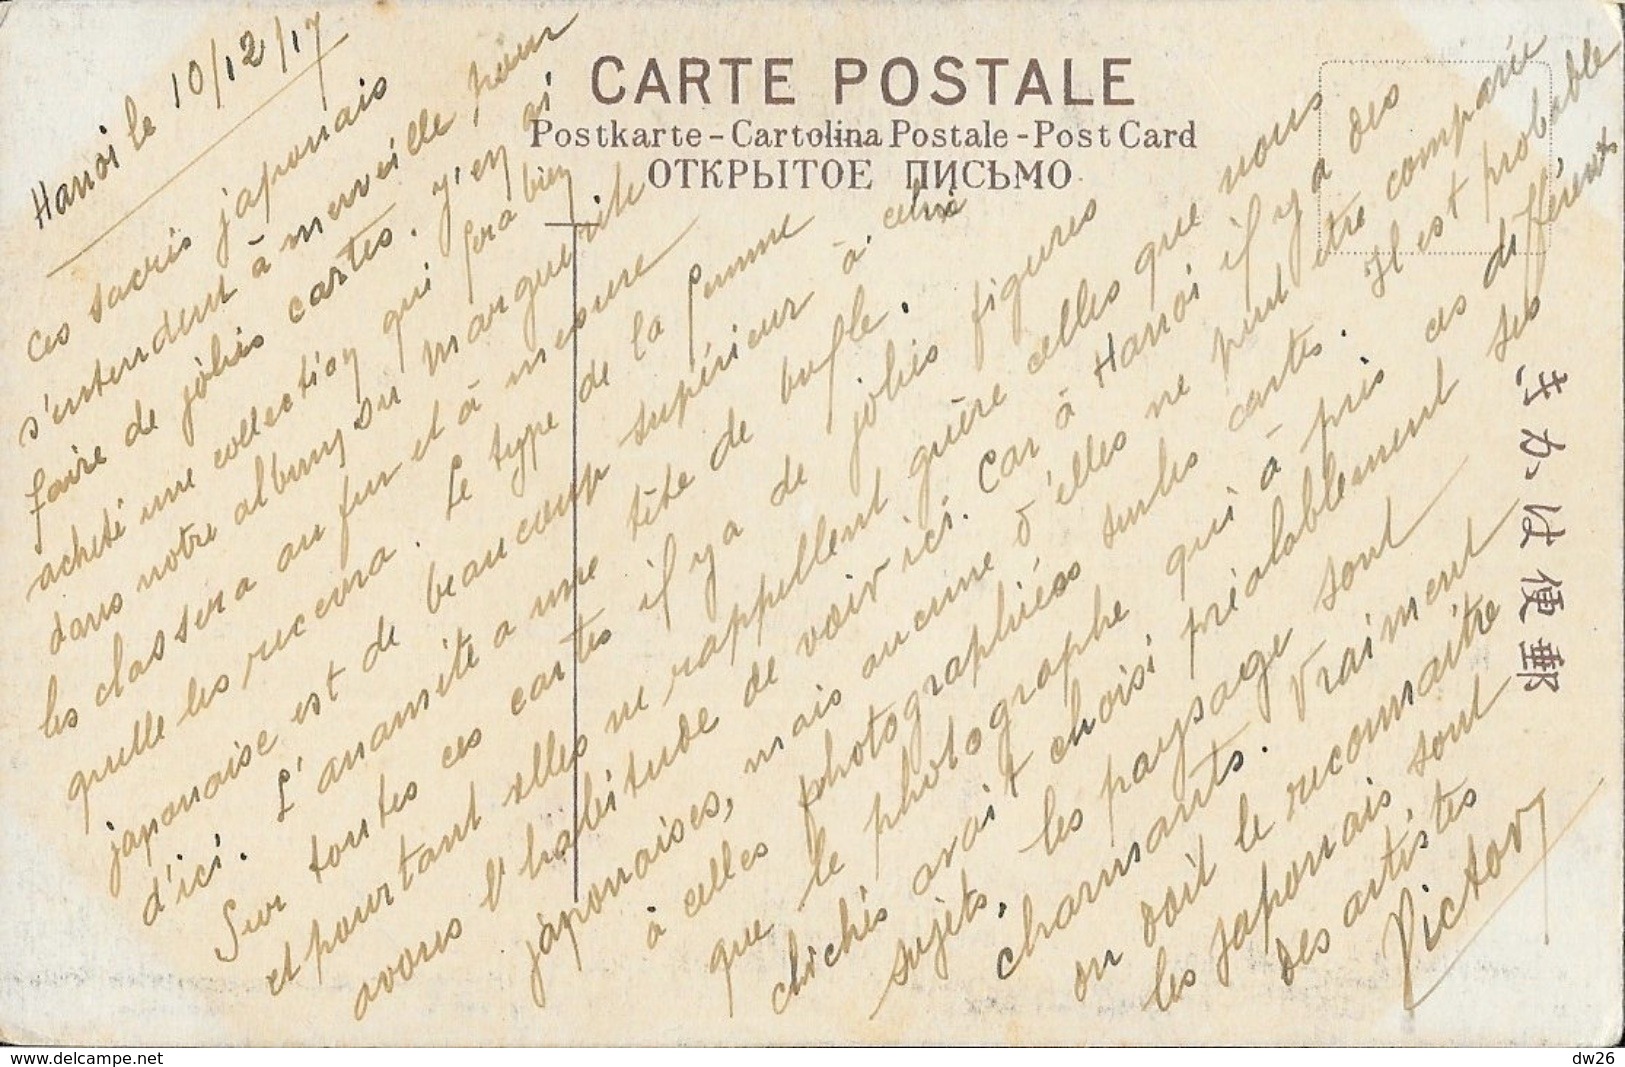 CARTE POSTALE
Postkarte - Cartolina Postale - Post Card
ОТКРЫТОЕ ПИСЬМО
きがは便郵
Hanoi le 10/12/17
Ces sacris japonais
s'entendent à merveille pour
faire de jolies cartes. j'en ai
acheté une collection qui fera bien
dans notre album, Marguerite
les classera au fur et à mesure
qu'elle les recevra. Le type de la femme
japonaise est de beaucoup supérieur à celui
d'ici. L'anamite a une tête de bufle.
Sur toutes ces cartes il y a de jolies figures
et pourtant elles ne rappellent guère celles que nous
avons l'habitude de voir ici. Car à Hanoi il y a des
japonaises, mais aucune d'elles ne peut être comparée
à celles photographiées sur les cartes. Il est probable
que le photographe qui à pris ces différents
clichés avait choisi préalablement ses
sujets. les paysage sont
charmants. Vraiment
on doit le reconnaitre
les Japonais sont
des artistes
Victor
www.delcampe.net
dw26